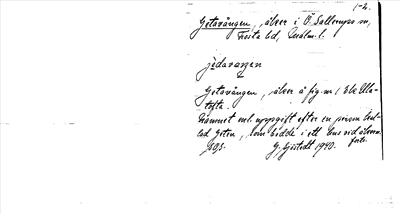 1-2.
Getavången, åker i Ö. Sallerups sn,
Frosta hd, Malm. l.
jèdavaŋen
Getavången, åker å fig. nr 1 Ek
tofta.
Namnet enl. uppgift efter en person
led Geten, som bodde i ett hus vid åkern.
G. Sjöstedt 1940.